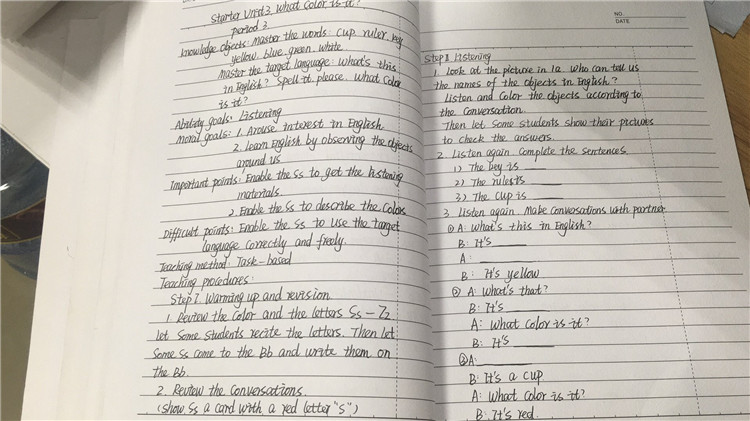 Starter Unit 3 What color is it?
period 3
knowledge objects: Master the words: cup. ruler. key
yellow. blue. green. white
master the target language: what's this
in English? Spell it. please. what color
is it?
Ability goals: Listening
Moral goals: 1. Arouse interest in English
2. learn English by observing the objects
around us
Important points: Enable the Ss to get the listening
materials
2. Enable the Ss to describe the colors
Difficult points: Enable the Ss to use the target
language correctly and freely.
Teaching method: Task-based
Teaching procedures:
Step I. Warming up and revision
1. Review the color and the letters Ss - Zz
let some students recite the letters. Then let
some Ss come to the Bb and write them on
the Bb.
2. Review the conversations.
(show Ss a card with a red letter "S")
NO.
DATE
Step II Listening
1. look at the picture in 1a. who can tell us
the names of the objects in English?
Listen and color the objects according to
the conversation.
Then let some students show their pictures
to check the answers.
2. Listen again. Complete the sentences
1) The key is
2) The ruler is
3) The cup is
3. Listen again. Make conversations with partner
① A: what's this in English?
B: It's
A:
B: It's yellow
② A: what's that?
B: It's
A: what color is it?
B: It's
③ A:
B: It's a cup
A: what color is it?
B: It's red.